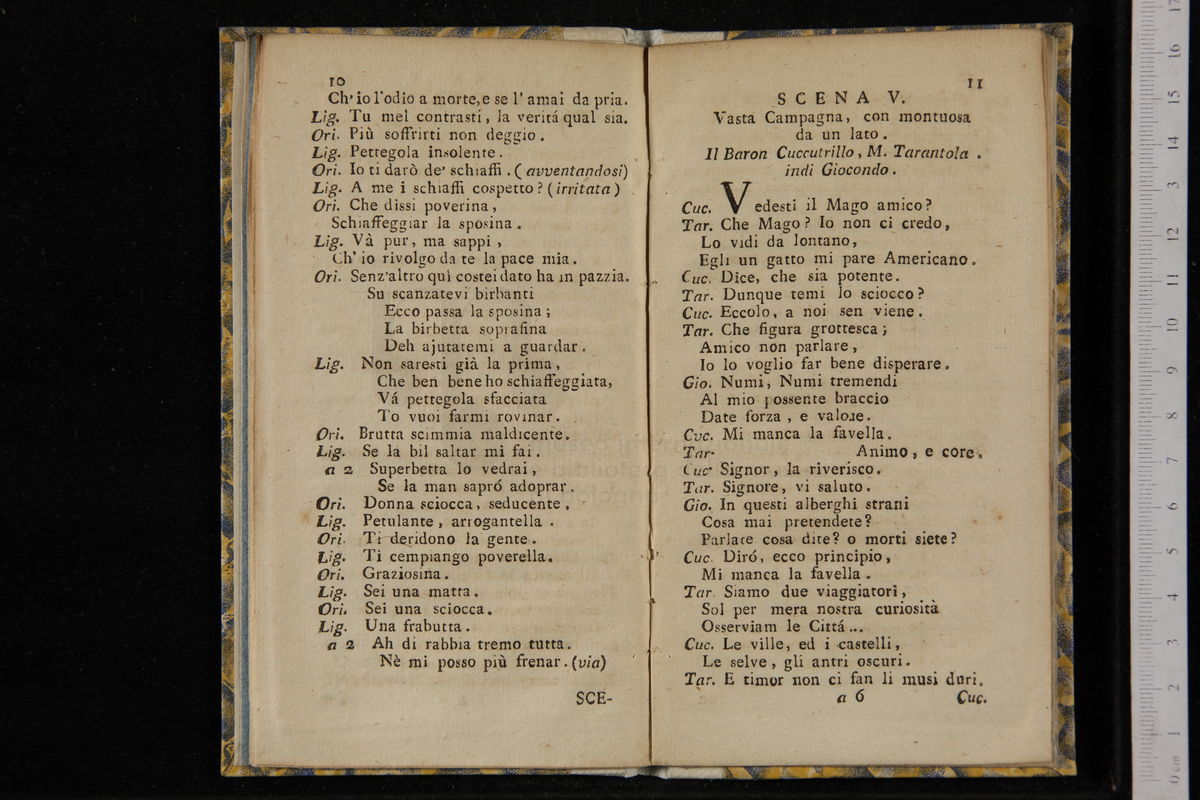 10
Ch' io l'odio a morte, e se l' amai da pria.
Lig. Tu mel contrasti, la veritá qual sia.
Ori. Più soffrirti non deggio.
Lig. Pettegola insolente.
Ori. Io ti darò de' schiaffi. ( avventandosi)
Lig. A me i schiaffi cospetto? ( irritata )
Ori. Che dissi poverina,
Schiaffeggiar la sposina.
Lig. Và pur, ma sappi,
Ch' io rivolgo da te la pace mia.
Ori. Senz'altro quì costei dato ha in pazzia.
Su scanzatevi birbanti
Ecco passa la sposina;
La birbetta soprafina
Deh ajutatemi a guardar.
Lig. Non saresti già la prima,
Che ben bene ho schiaffeggiata,
Vá pettegola sfacciata
To vuoi farmi rovinar.
Ori. Brutta scimmia maldicente.
Lig. Se la bil saltar mi fai.
a 2 Superbetta lo vedrai,
Se la man sapró adoprar.
Ori. Donna sciocca, seducente.
Lig. Petulante, arrogantella.
Ori. Ti deridono la gente.
Lig. Ti cempiango poverella.
Ori. Graziosina.
Lig. Sei una matta.
Ori. Sei una sciocca.
Lig. Una frabutta.
a 2 Ah di rabbia tremo tutta.
Nè mi posso più frenar. (via)
SCE-
11
SCENA V.
Vasta Campagna, con montuosa
da un lato.
Il Baron Cuccutrillo, M. Tarantola.
indi Giocondo.
Cuc. Vedesti il Mago amico?
Tar. Che Mago? Io non ci credo,
Lo vidi da lontano,
Egli un gatto mi pare Americano.
Cuc. Dice, che sia potente.
Tar. Dunque temi lo sciocco?
Cuc. Eccolo, a noi sen viene.
Tar. Che figura grottesca;
Amico non parlare,
Io lo voglio far bene disperare.
Gio. Numi, Numi tremendi
Al mio possente braccio
Date forza, e valore.
Cvc. Mi manca la favella.
Tar- Animo, e core.
Cuc' Signor, la riverisco.
Tar. Signore, vi saluto.
Gio. In questi alberghi strani
Cosa mai pretendete?
Parlate cosa dite? o morti siete?
Cuc. Diró, ecco principio,
Mi manca la favella.
Tar. Siamo due viaggiatori,
Sol per mera nostra curiosità
Osserviam le Cittá ...
Cuc. Le ville, ed i castelli,
Le selve, gli antri oscuri.
Tar. E timor non ci fan li musi duri.
a 6 Cuc.
0 cm 1 2 3 4 5 6 7 8 9 10 11 12 13 14 15 16 17